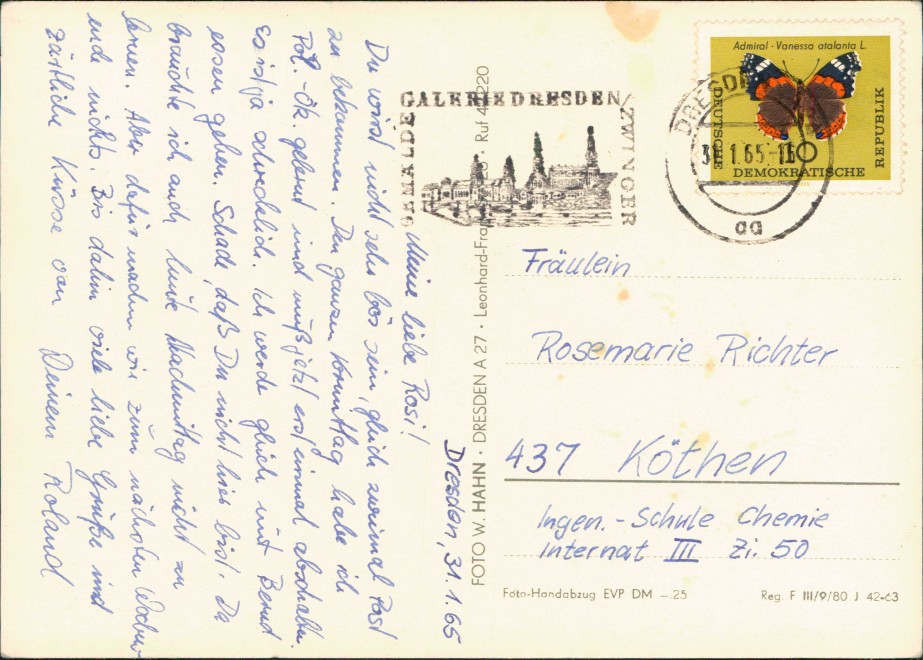 Dresden, 31.1.65
Meine liebe Rosi!
Du wirst nicht sehr bös sein, gleich zweimal Post
zu bekommen. Den ganzen Vormittag habe ich
Pol.-Ök. gelernt und muß jetzt erst einmal abschalten.
Es ist ja schrecklich. Ich werde gleich mit Bernd
essen gehen. Schade, daß Du nicht hier bist. Da
brauchte ich auch heute Nachmittag nicht zu
lernen. Aber dafür machen wir zum nächsten Wochen-
ende nichts. Bis dahin viele liebe Grüße und
zärtliche Küsse von Deinem Roland
GEMÄLDE
GALERIE DRESDEN
ZWINGER
FOTO W. HAHN · DRESDEN A 27 · Leonhard-Fra · Ruf 4 220
Admiral - Vanessa atalanta L.
DEUTSCHE
DEMOKRATISCHE
REPUBLIK
10
DRESDEN
31.1.65
aa
Fräulein
Rosemarie Richter
437 Köthen
Ingen.-Schule Chemie
Internat III Zi. 50
Foto-Handabzug EVP DM –.25
Reg. F III/9/80 J 42-63